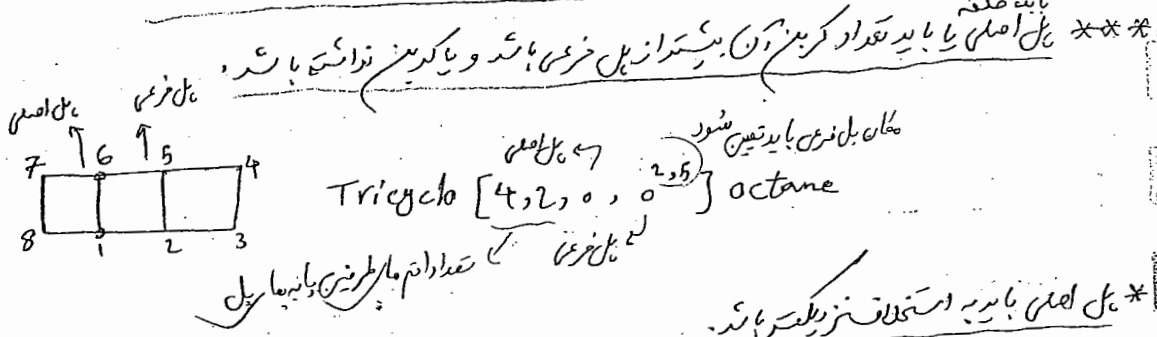 *** پل اصلی یا باید تعداد کربن آن بیشتر از پل فرعی باشد و یا کربن نداشته باشد.
پل اصلی پل فرعی
7 6 5 4
8 1 2 3
پل اصلی
مکان پل فرعی باید تعیین شود
Tricyclo [4,2,0,0^2,5] octane
پل فرعی
تعداد اتم های طرفین پایه های پل
* پل اصلی باید به استخلاف نزدیکتر باشد.